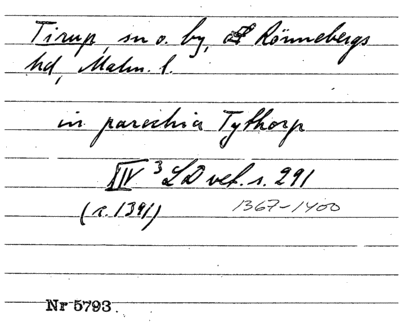 Tirup, sn o. by, Rönnebergs
hd, Malm. l.
in parochia Tythorp
XIV 3 LD vet. s. 291
(c. 1391) 1367-1400
Nr 5793.